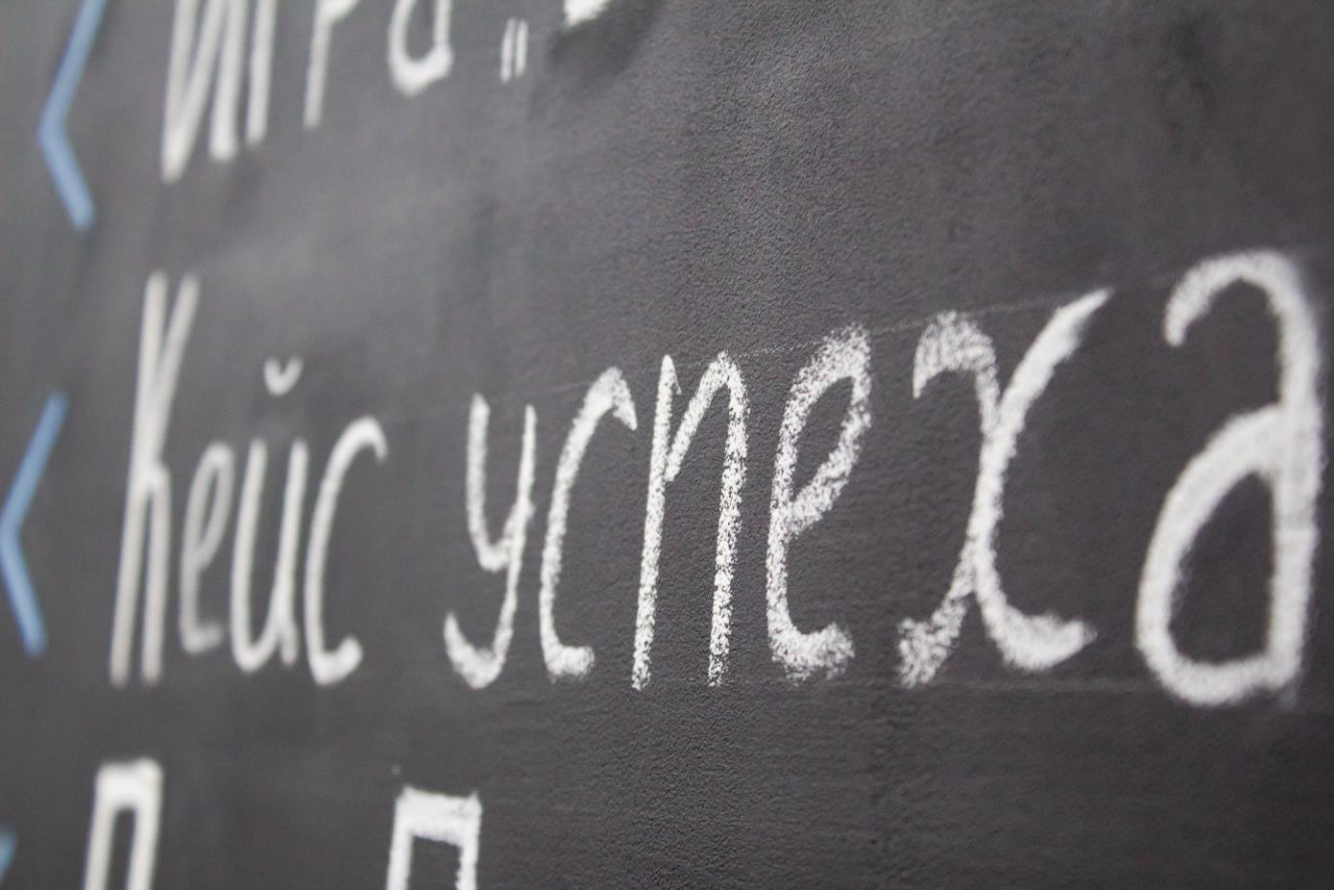 игра „
Кейс успеха